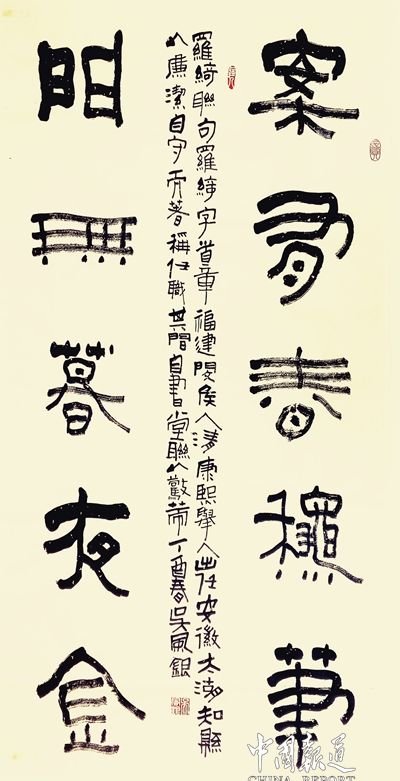 案有春穐筆
羅綺聯句羅綺字首章福建閩侯人清康熙舉人出任安徽太湖知縣
以廉潔自守而著稱任職其間自書堂聯以丁酉春吳風銀
門無暮夜金
中國報道
CHINA REPORT